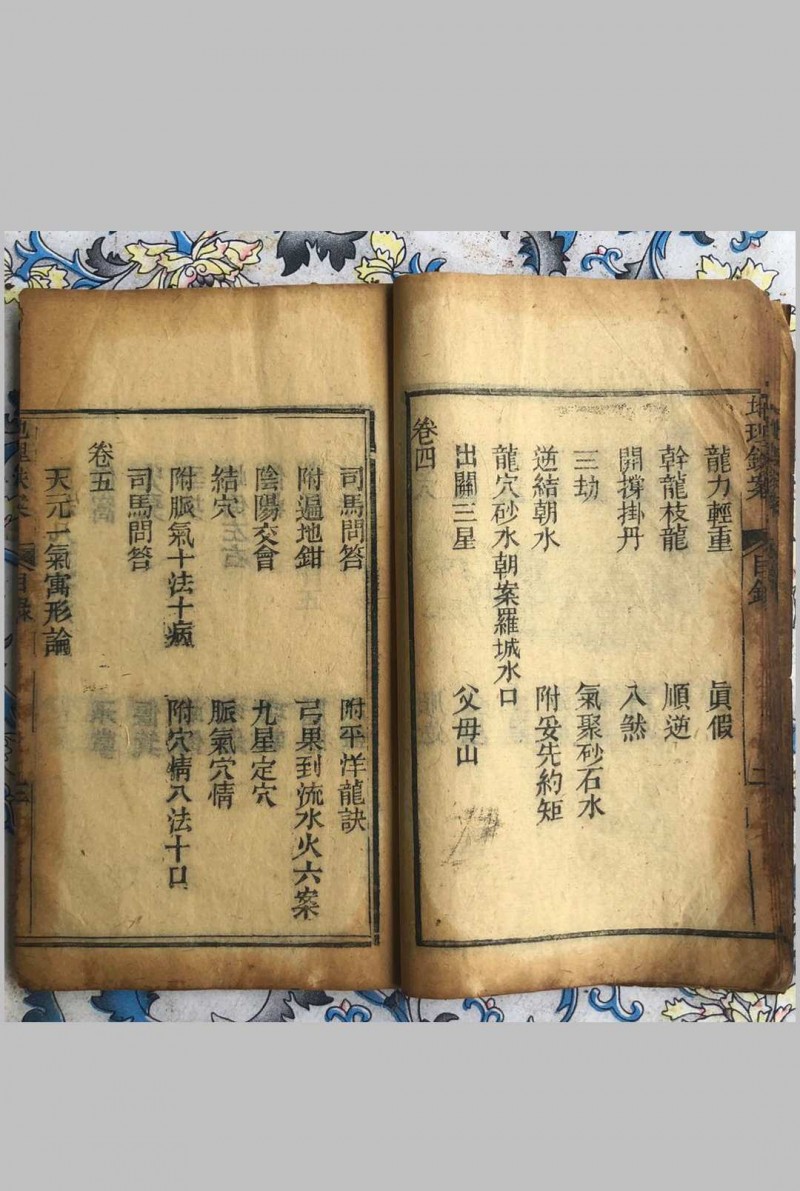 地理鈔案
目錄
二
龍力輕重
眞假
幹龍枝龍
順逆
開撐掛丹
入煞
三劫
氣聚砂石水
逆結朝水
附妥先約矩
龍穴砂水朝案羅城水口
出關三星
父母山
卷四
司馬問答
附平洋龍訣
附遍地鉗
弓果到流水火六案
陰陽交會
九星定穴
結穴
脈氣穴情
附脈氣十法十病
附穴情八法十口
司馬問答
卷五
天元一氣寓形論
目錄